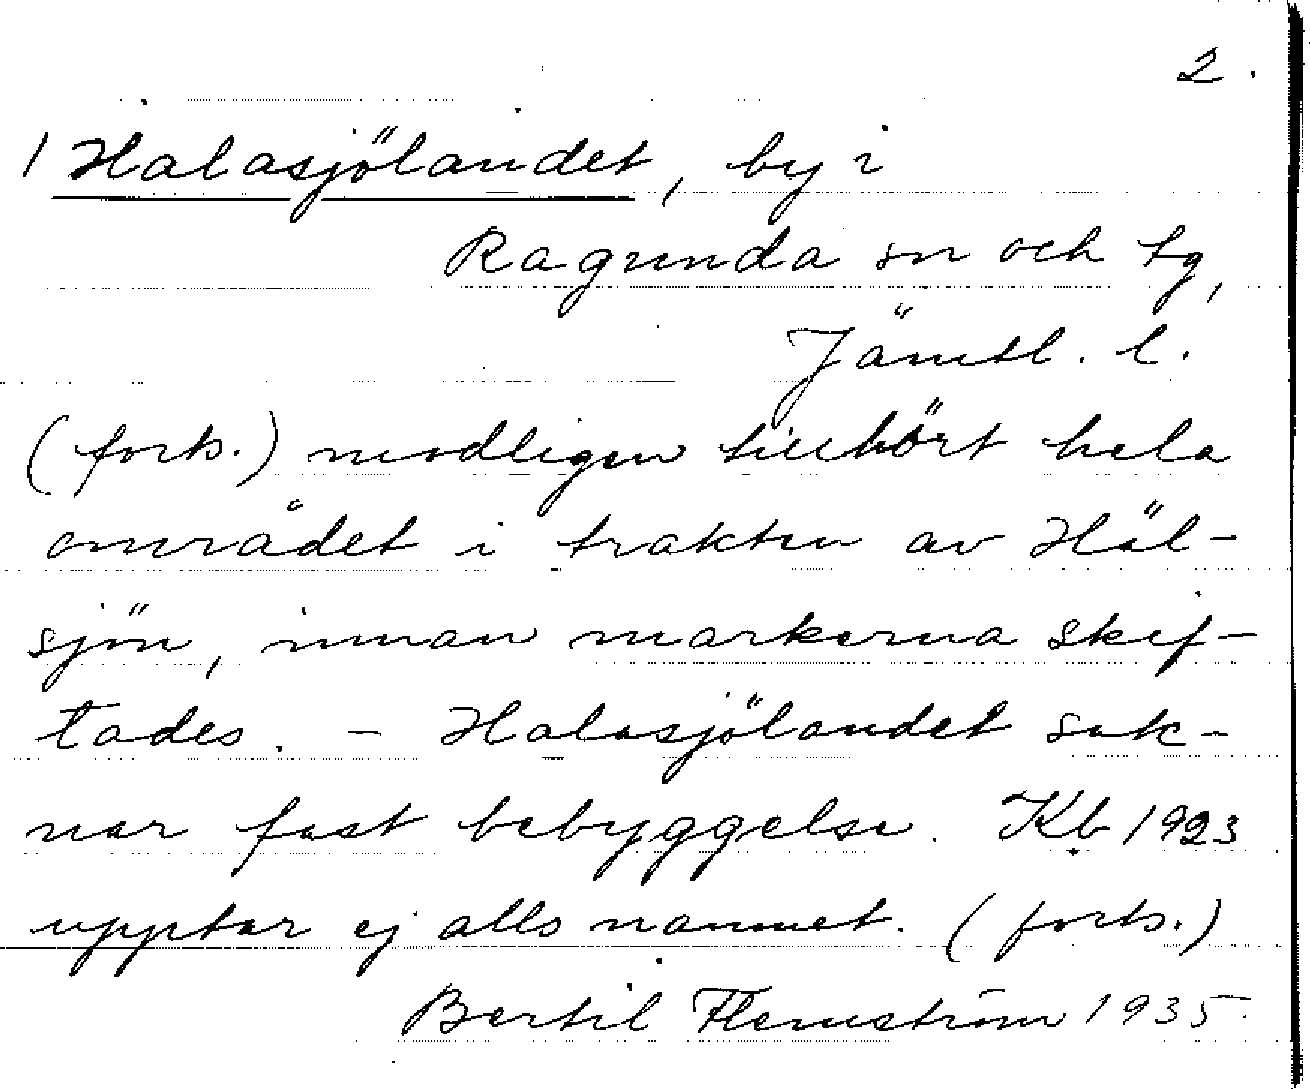 2.
/ Halasjölandet, by i
Ragunda sn och tg,
Jämtl. l.
(forts.) modligen tillhört hela
området i trakten av Häl-
sjön, innan markerna skif-
tades. - Halasjölandet sak-
nar fast bebyggelse. Kb 1923
upptar ej alls namnet. (forts.)
Bertil Flemström 1935.